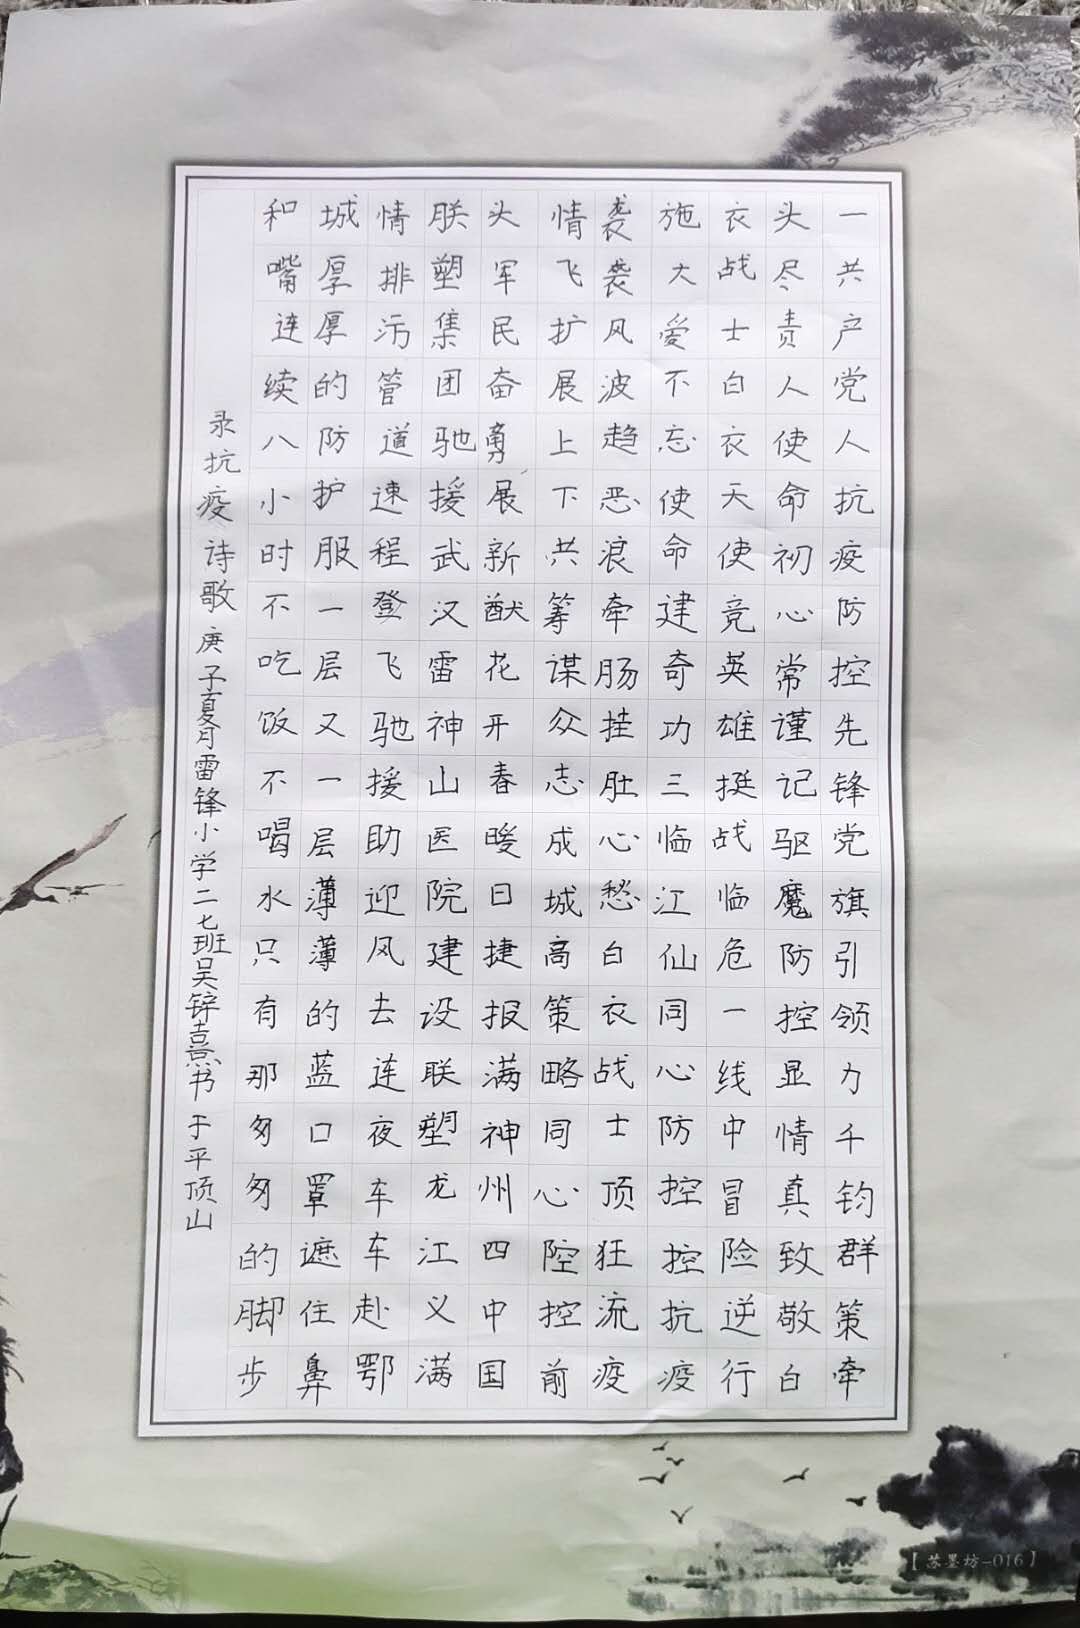 一共产党人抗疫防控先锋党旗引领力千钧群策牵
头尽责人使命初心常谨记驱魔防控显情真致敬白
衣战士白衣天使竞英雄挺战临危一线中冒险逆行
施大爱不忘使命建奇功三临江仙同心防控控抗疫
袭袭风波趋恶浪牵肠挂肚心愁白衣战士顶狂流疫
情飞扩展上下共筹谋众志成城高策略同心控前
头军民奋勇展新猷花开春暖日捷报满神州四中国
朕塑集团驰援武汉雷神山医院建设联塑龙江义满
情排污管道速程登飞驰援助迎风去连夜车车赴鄂
城厚厚的防护服一层又一层薄薄的蓝口罩遮住鼻
和嘴连续八小时不吃饭不喝水只有那匆匆的脚步
录抗疫诗歌 庚子夏月雷锋小学二七班吴锌熹书于平顶山
【苏墨坊-016】